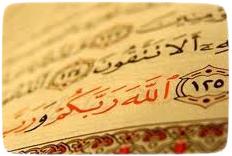 أَلَا تَتَّقُونَ ١٢٤
١٢٥ ٱللَّهَ رَبَّكُمْ وَرَبَّ